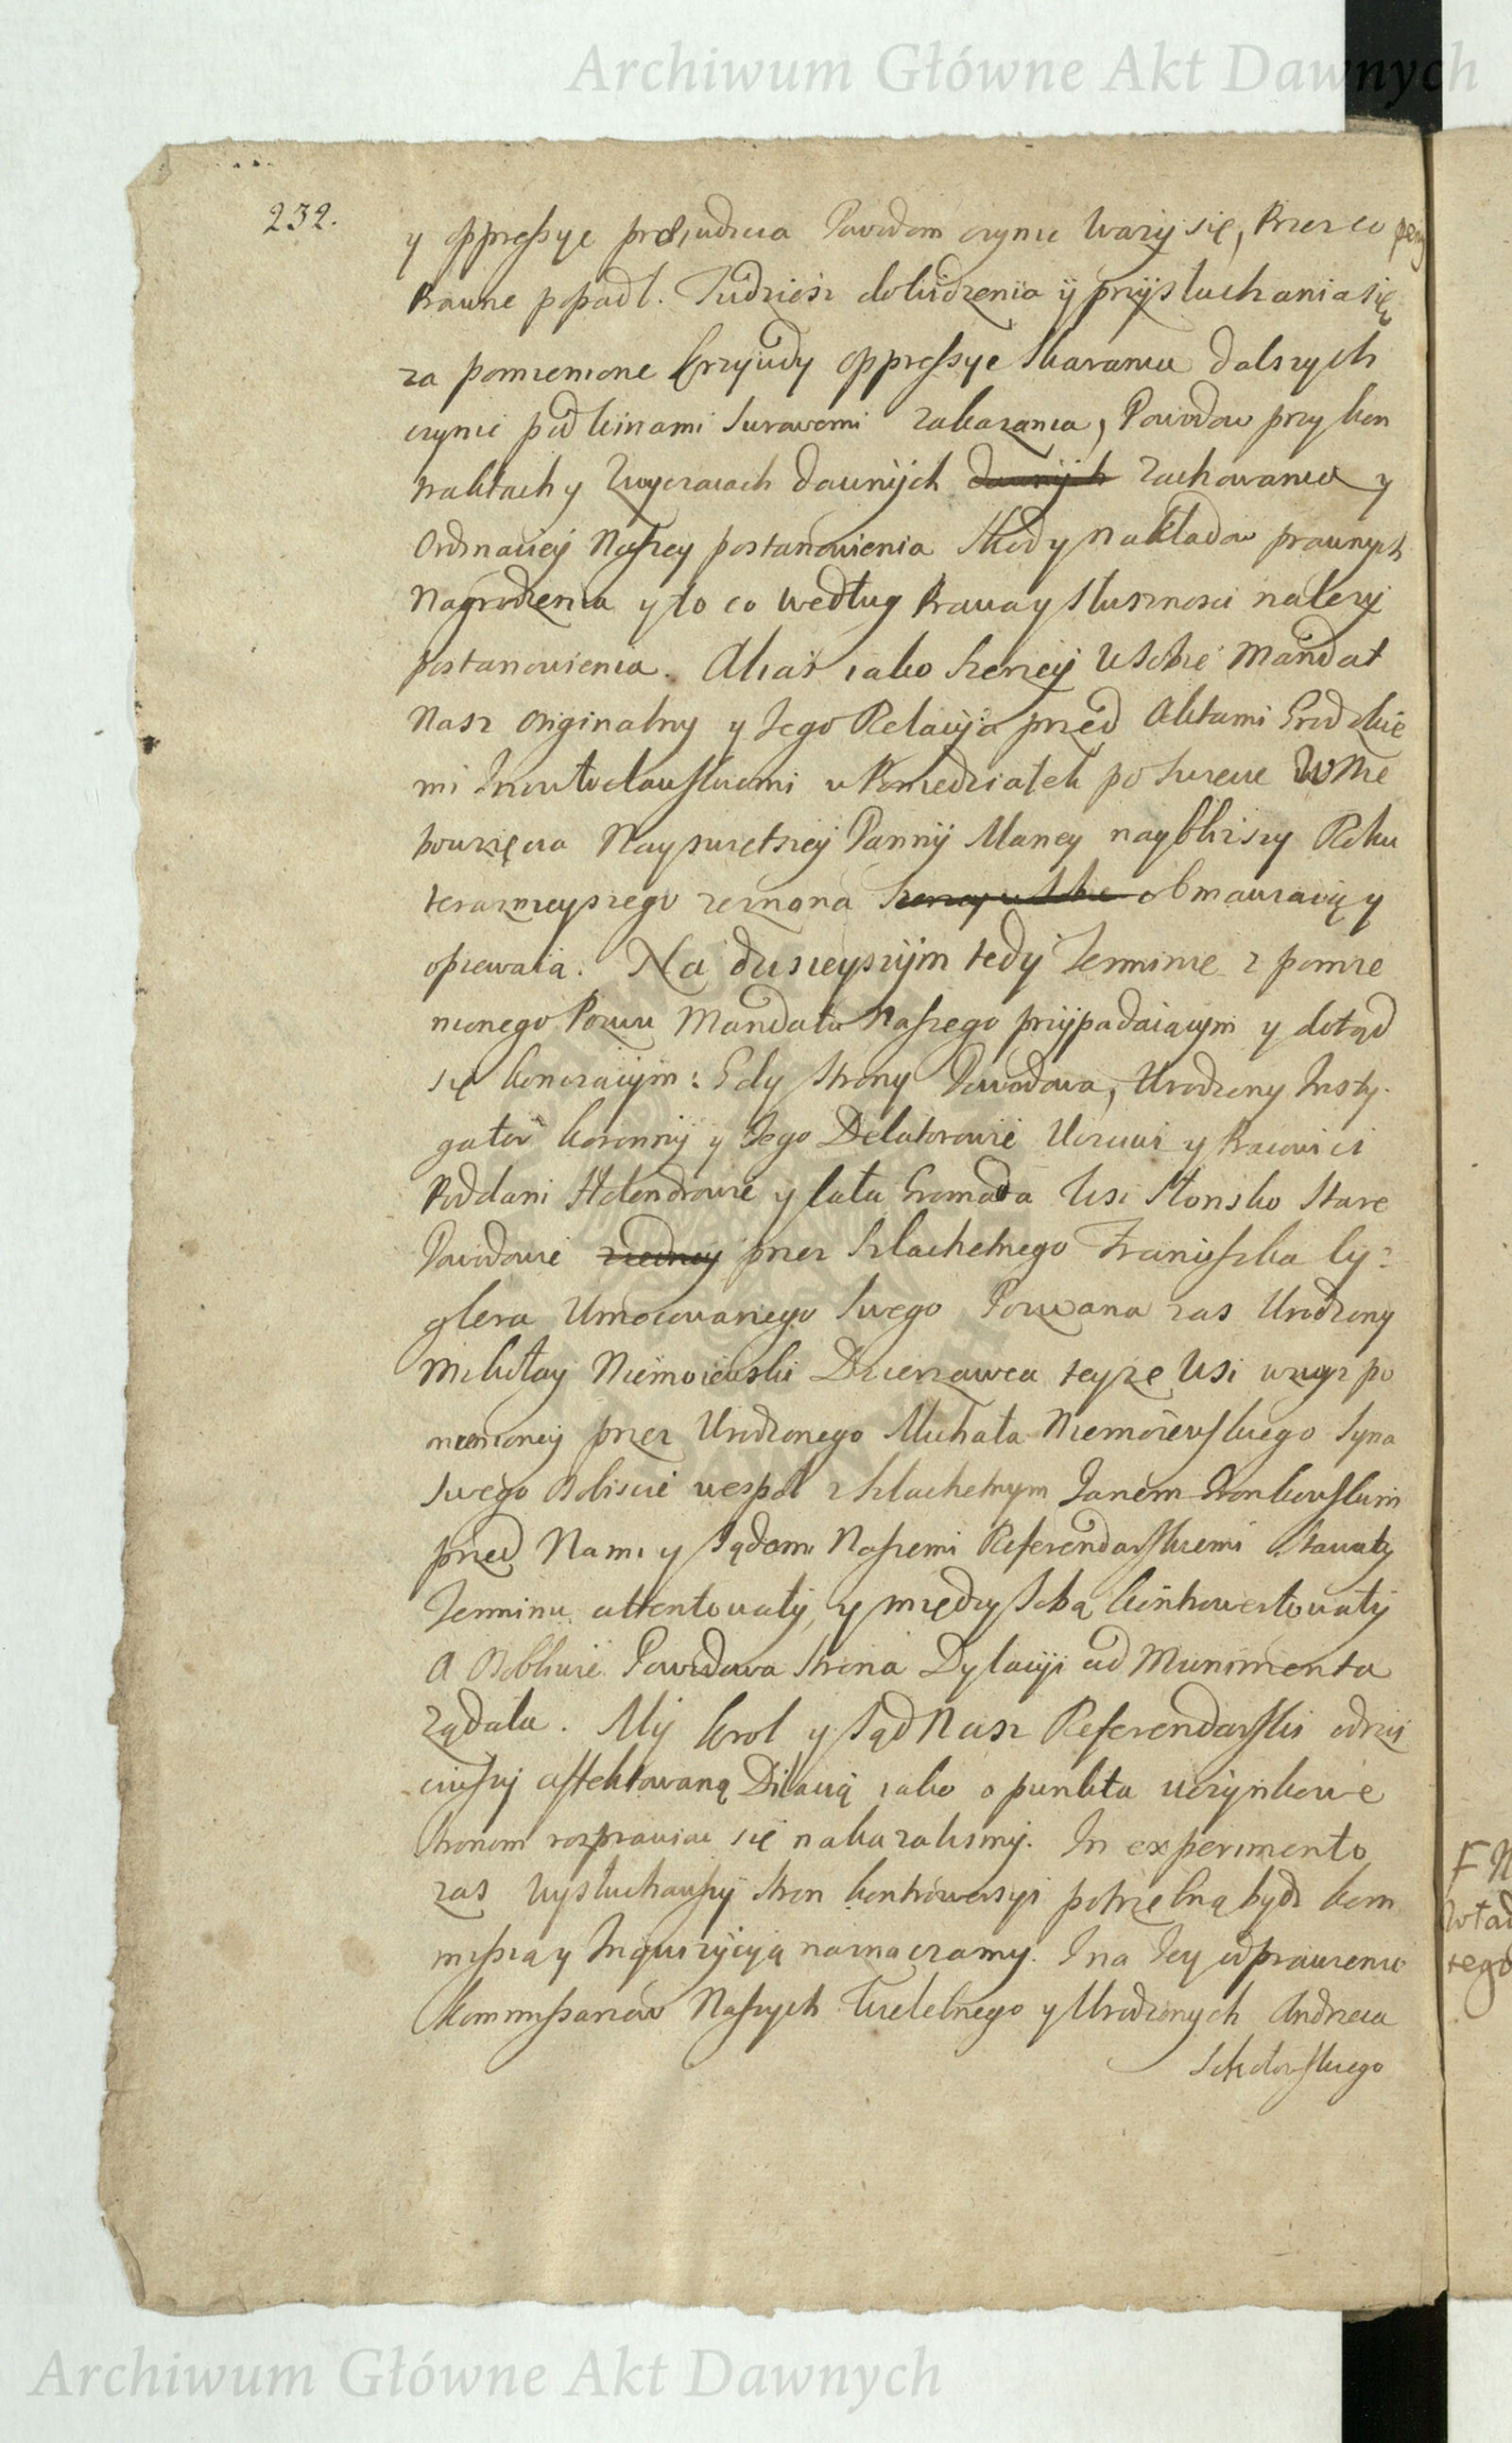 Archiwum Główne Akt Dawnych
232.
y oppressye preiudicia Powodom czynic wazy się, Przez co peny
Prawne popadl. Tudziesz do widzenia ÿ przysłuchania się
za pomienione krzywdy oppressye skarania dalszych
czynic pod winami surowemi zakazania, Powodow przy kon
traktach y zwyczaiach dawnych dawnych zachowania y
Ordinacyi Naszey postanowienia szkod y nakładow prawnych
Nagrodzenia y to co według Prawa y słusznosci nalezy
postanowienia. Aliaś iako szerzey w sobie Mandat
Nasz originalny y Jego Relacyia przed Aktami Grodzkie
mi Inowłocławskiemi w Poniedziałek po Swięcie W Nie
bowzięcia Nayswiętszey Panny Maryey naybliszy Roku
teraznieyszego zeznana szerzey w sobie obmawiaią y
opiewaią. Na dzisieyszym tedy Terminie z pomie
nionego Pozwu Mandatu Naszego przypadaiącym y dotąd
się konczącym: Gdy strony Powodowa, Urodzony Insty-
gator koronny y Jego Delatorowie Uczciwi y Pracowici
Poddani Holendrowie y cała Gromada Wsi Słonsko Stare
Powodowie z iedney przez Szlachetnego Franciszka Cy:
glera Umocowanego swego Pozwana zas Urodzony
Mikołay Niemoiewski Dzierzawca teyze Wsi wzwyz po
mienioney przez Urodzonego Michała Niemoiewskiego syna
swego osobiscie wespoł z Szlachetnym Janem
przed Nami y sądami Naszemi Referendarskiemi stawały
Terminu attentowały, y między sobą kontrowertowały
A osobliwie Powodowa strona Dylacyi ad Munimenta
ządała. My krol y sąd Nasz Referendarski odrzu
ciwszy affektowaną Dilacią iako o punkta uczynkowe
stronom rozprawiac się nakazalismy. In experimento
zas wysłuchawszy stron kontrowersyi potrzebną bydz kom
missią y Inquizycyią naznaczamy. I na Jey odprawienie
kommissarzow Naszych Wielebnego y Urodzonych Andrzeia
Sokołowskiego
Archiwum Główne Akt Dawnych